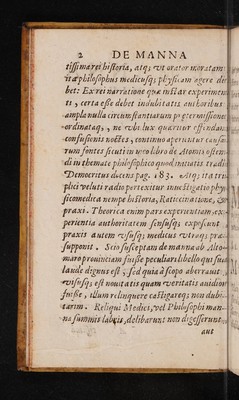 2 DE MANNA
tissimarei historia, atq; vt orator moratam:
ita philosophus medicusq; physicam agere de-
bet: Ex rei narratione quæ instar experimen
ti, certa esse debet indubitatis authoribus
ampla nulla circumstantiarum prætermissione
ordinataq, ne vbi lux quæritur offendatur
confusionis noctes, continuo aperiuntur causa-
rum fontes sicuti in meo libro de Atomis osten-
di in themate philosophico quod initiatis tradit
Democritus docens pag. 183. Atq; ita tri-
plici veluti radio pertexitur inuestigatio phy-
sicomedica nempe historia, Ratiocinatione, &
praxi. Theorica enim pars experientiam, ex-
perientia authoritatem sensusq; exposcunt
praxis autem vsusq; medicus vtraq; præ-
supponit. Scio susceptam de manna ab Alto-
maro prouinciam fuisse peculiari libello qui sua
laude dignus est, sed quia à scopo aberrauit
visusq; est nouitatis quam veritatis auidior
fuisse, illum relinquere castigareq; non dubi-
tarim. Reliqui Medici, vel Philosophi man-
na summis labijs, delibarunt non digesserunt
aut